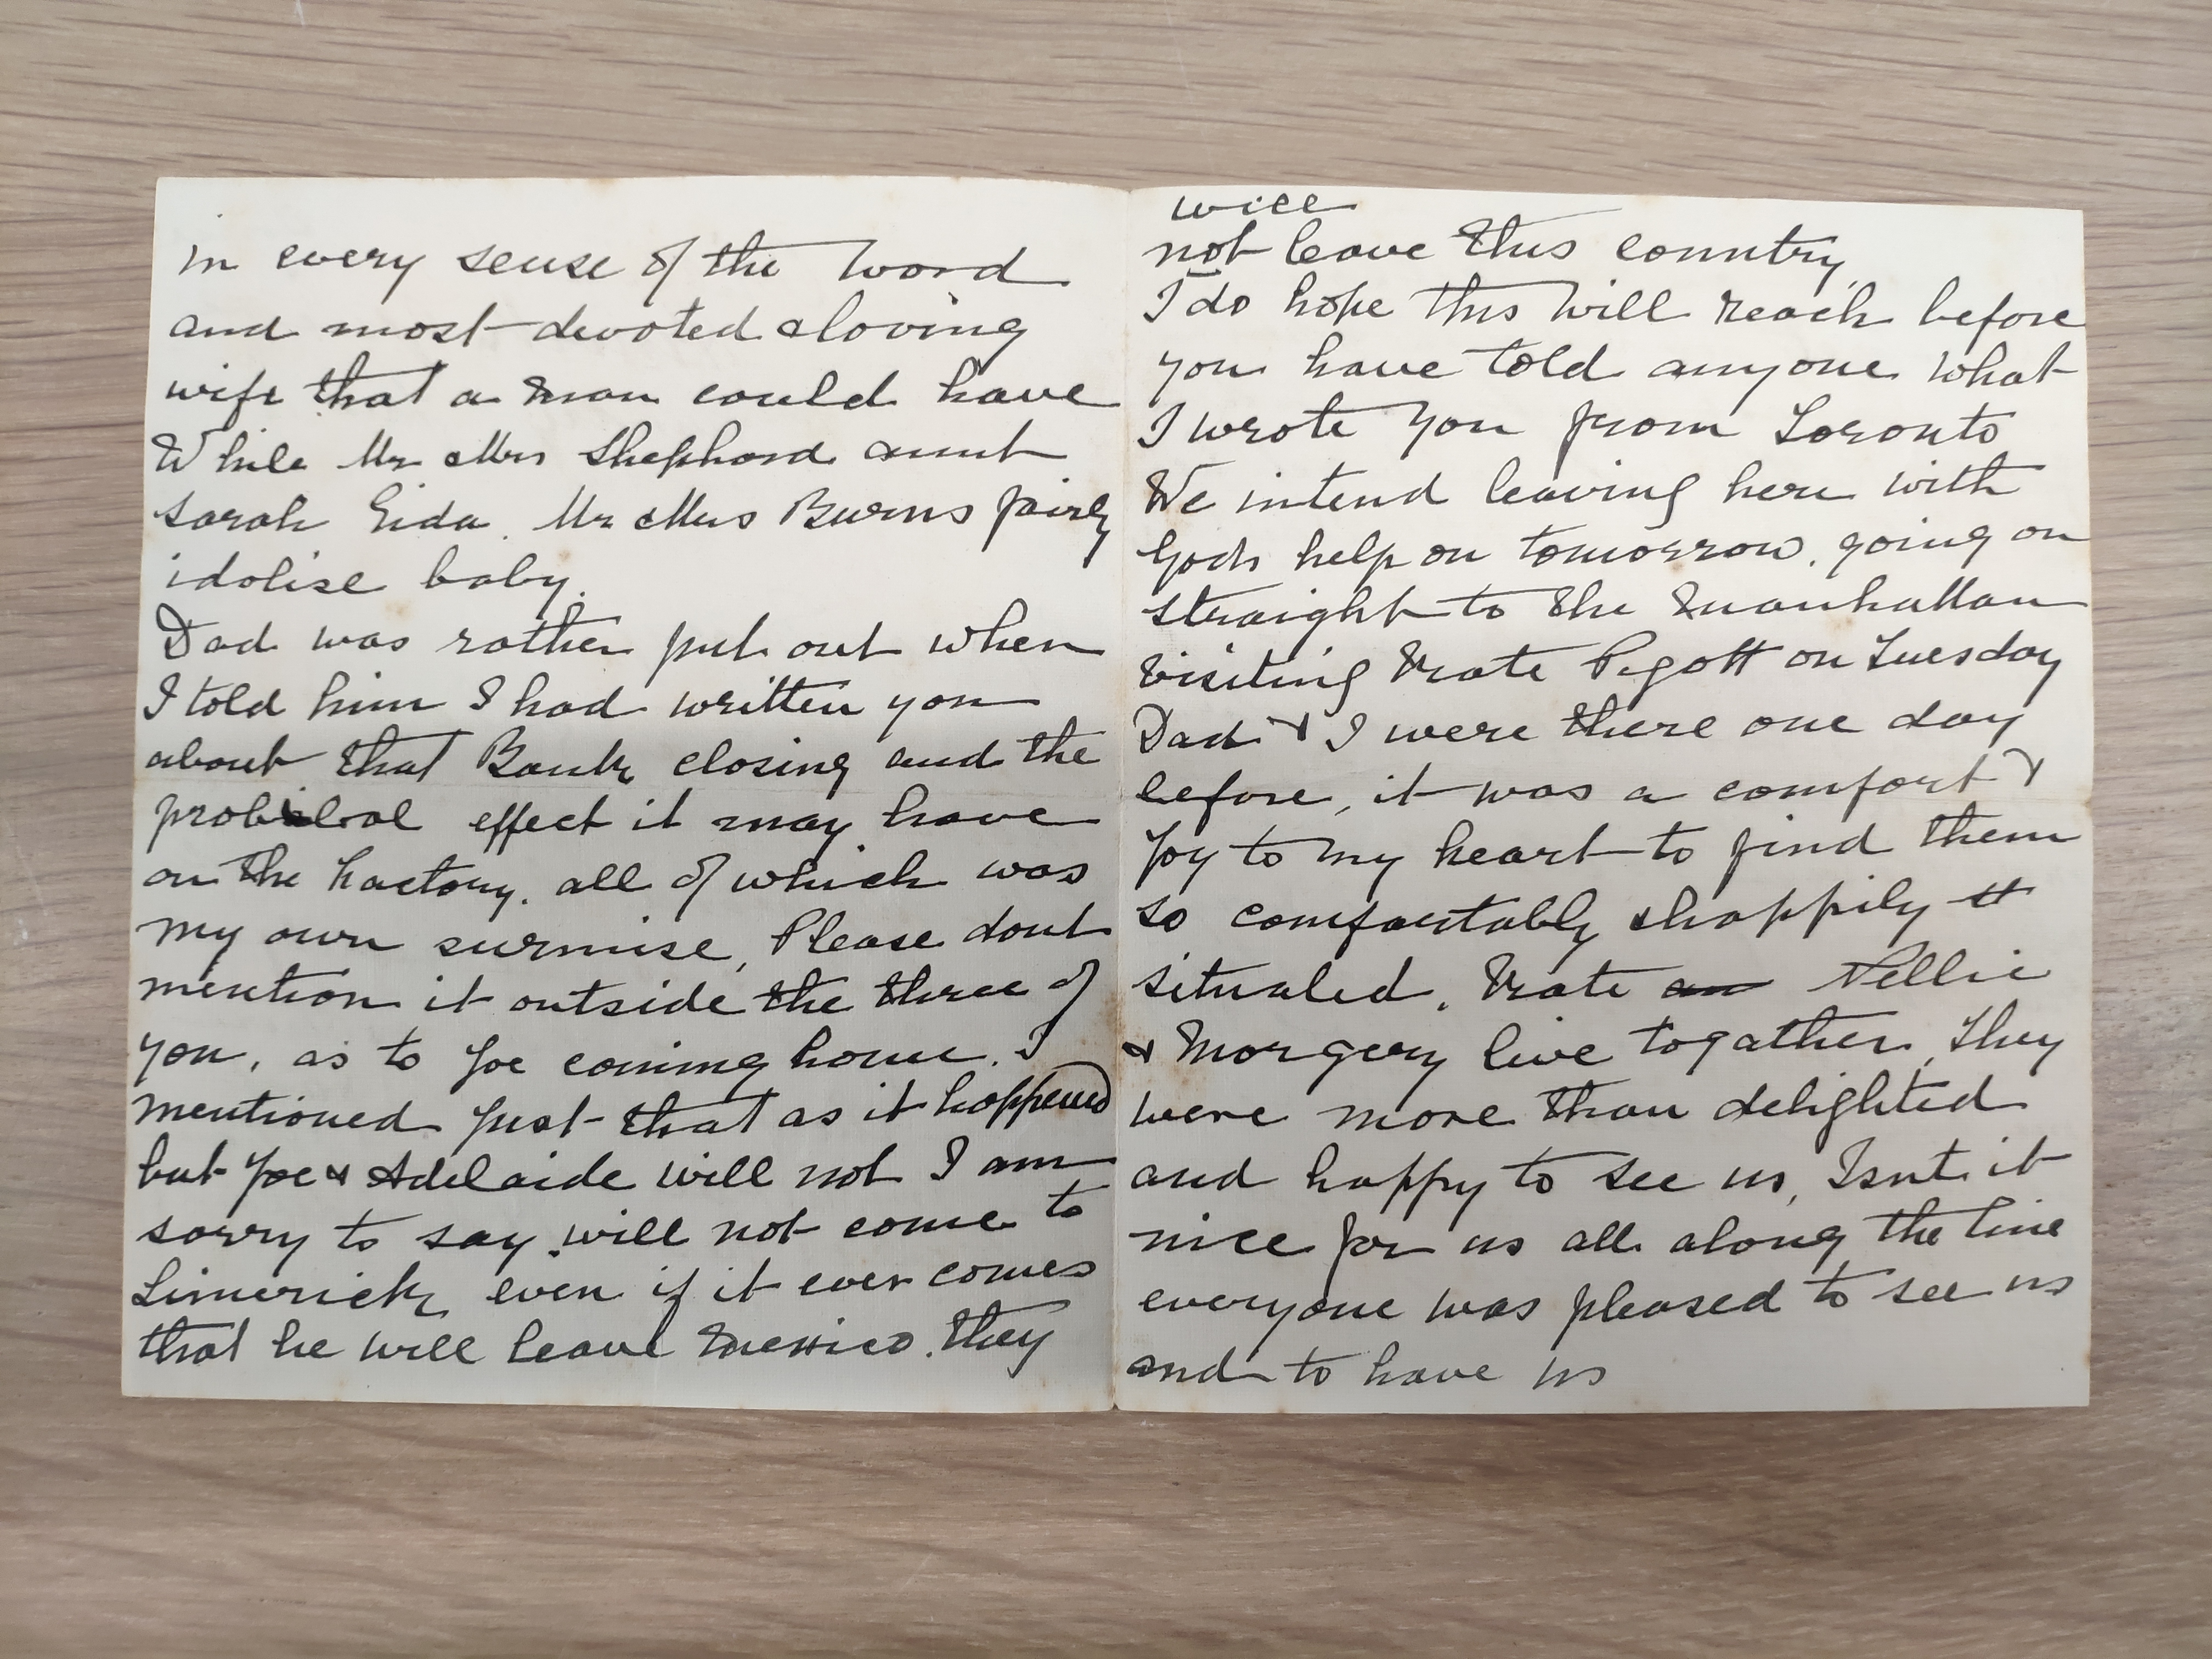 in every sense of the word
and most devoted & loving
wife that a man could have
While Mr & Mrs Shephard aunt
Sarah Eida. Mr & Mrs Burns fairly
idolise baby.
Dad was rather put out when
I told him I had written you
about that Bank closing and the
effect it may have
on the Factory. all of which was
my own surmise, Please dont
mention it outside the three of
you, as to Joe coming home. I
mentioned just that as it happened
but Joe & Adelaide will not I am
sorry to say, will not come to
Limerick even if it ever comes
that he will leave Mexico. they
will
not leave this country
I do hope this will reach before
you have told anyone what
I wrote you from Toronto
We intend leaving here with
Gods help on tomorrow. going on
straight to the Manhattan
visiting Kate Pigott on Tuesday
Dad & I were there one day
before, it was a comfort &
joy to my heart to find them
so comfortably & happily
situated. Kate an Nellie
& Morgery live togather, They
were more than delighted
and happy to see us, Isnt it
nice for us all along the line
everyone was pleased to see us
and to have us